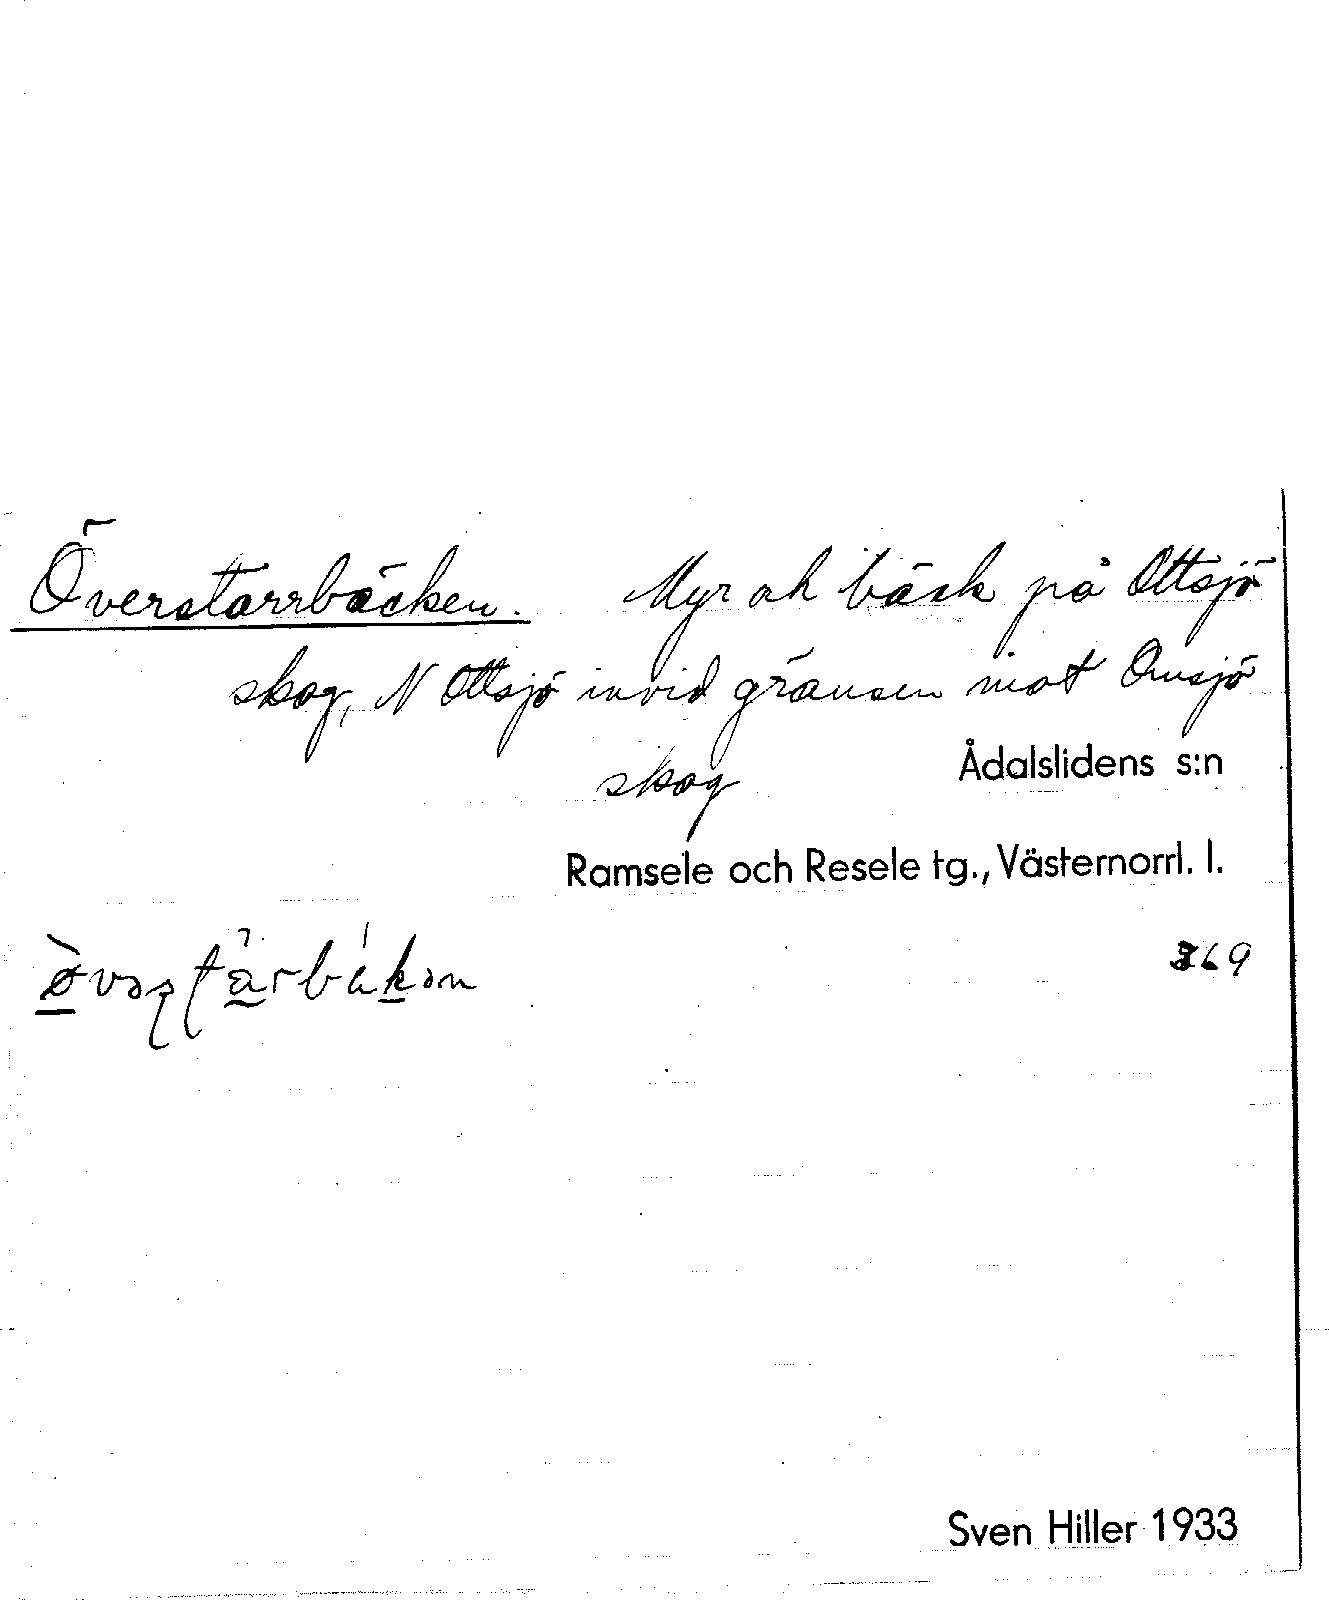 Överstarrbäcken. Myr och bäck på Ottsjö
skog, N Ottsjö invid gränsen mot Omsjö
skog
Ådalslidens s:n
Ramsele och Resele tg., Västernorrl. l.
369
Sven Hiller 1933